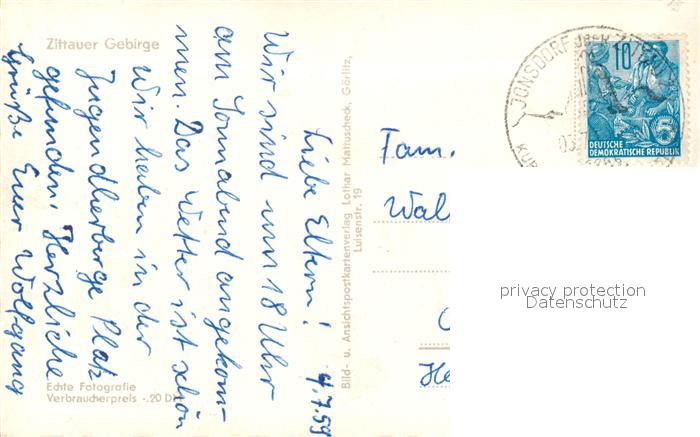 Zittauer Gebirge
4.7.59
Liebe Eltern!
Wir sind um 18 Uhr
am Sonnabend angekom-
men. Das Wetter ist schön
Wir haben in der
Jugendherberge Platz
gefunden! Herzliche
Grüße Euer Wolfgang
Echte Fotografie
Verbraucherpreis -.20 DM
Bild- u. Ansichtspostkartenverlag Lothar Mattuscheck, Görlitz,
Luisenstr. 19
JONSDORF
KUR
10
5
DEUTSCHE
DEMOKRATISCHE REPUBLIK
Fam.
Wal
He
privacy protection
Datenschutz